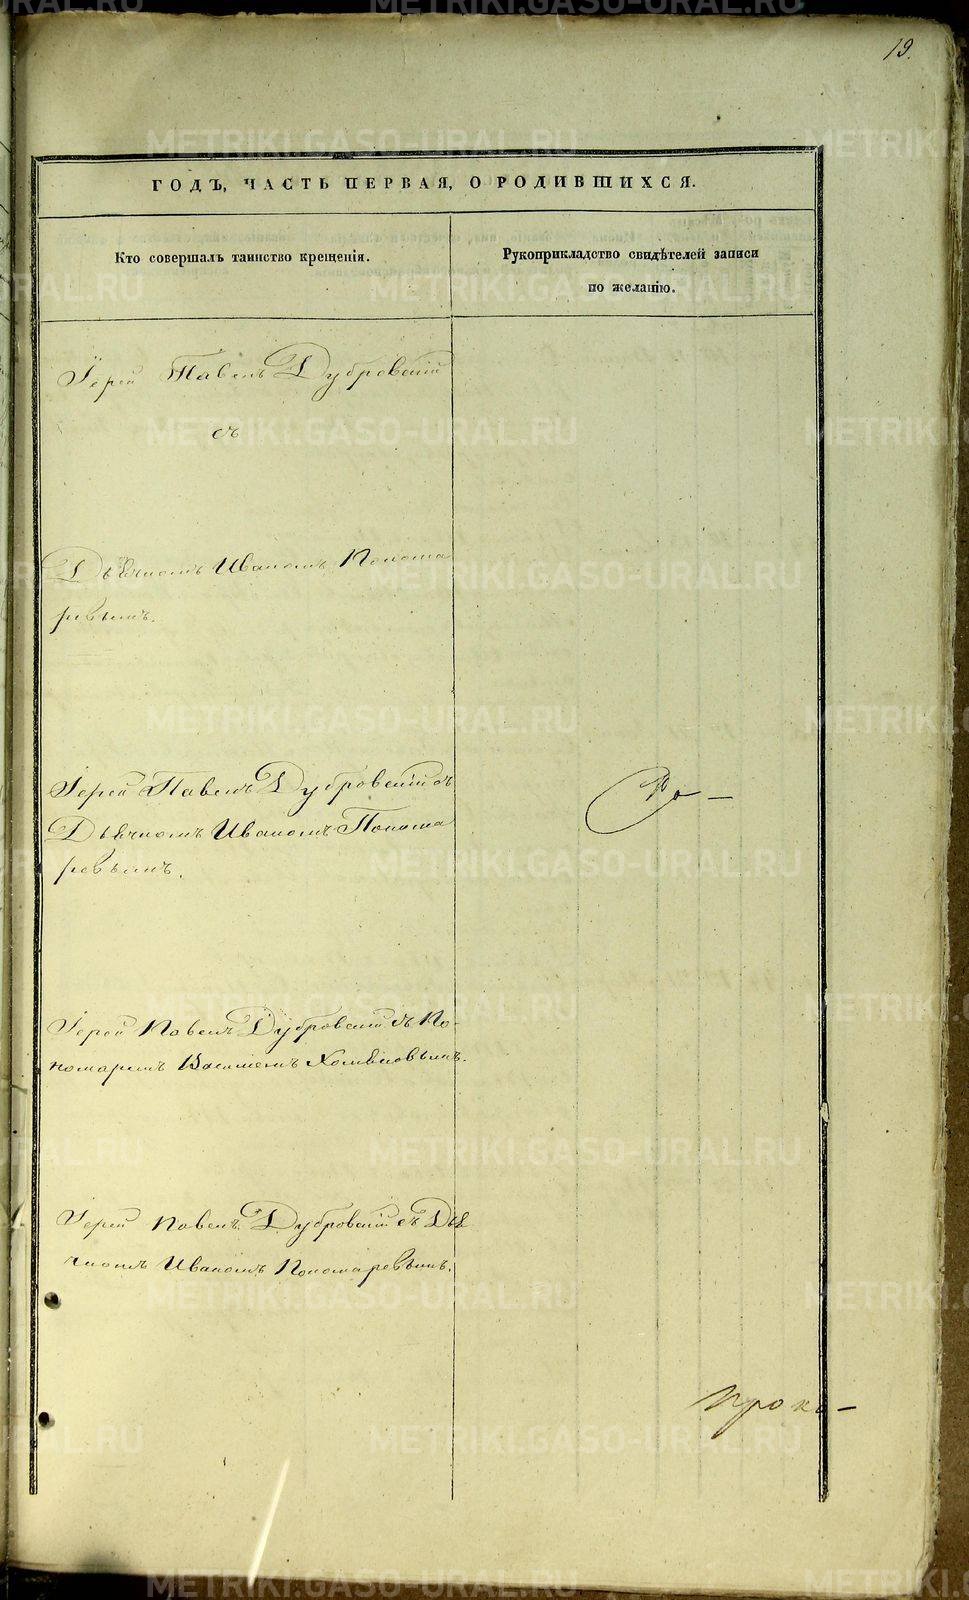 19.
ГОДЪ, ЧАСТЬ ПЕРВАЯ, О РОДИВШИХСЯ.
Кто совершалъ таинство крещенія.
Рукоприкладство свидѣтелей записи
по желанію.
Іерей Павелъ Дубровскій
съ
Дьячкомъ Иваномъ Понома
ревымъ.
Іерей Павелъ Дубровскій съ
Дьячкомъ Иваномъ Понома
ревымъ.
Іерей Павелъ Дубровскій съ По-
номаремъ Василіемъ Хомяковымъ.
Іерей Павелъ Дубровскій съ Дья
чкомъ Иваномъ Пономаревымъ.
METRIKI.GASO-URAL.RU